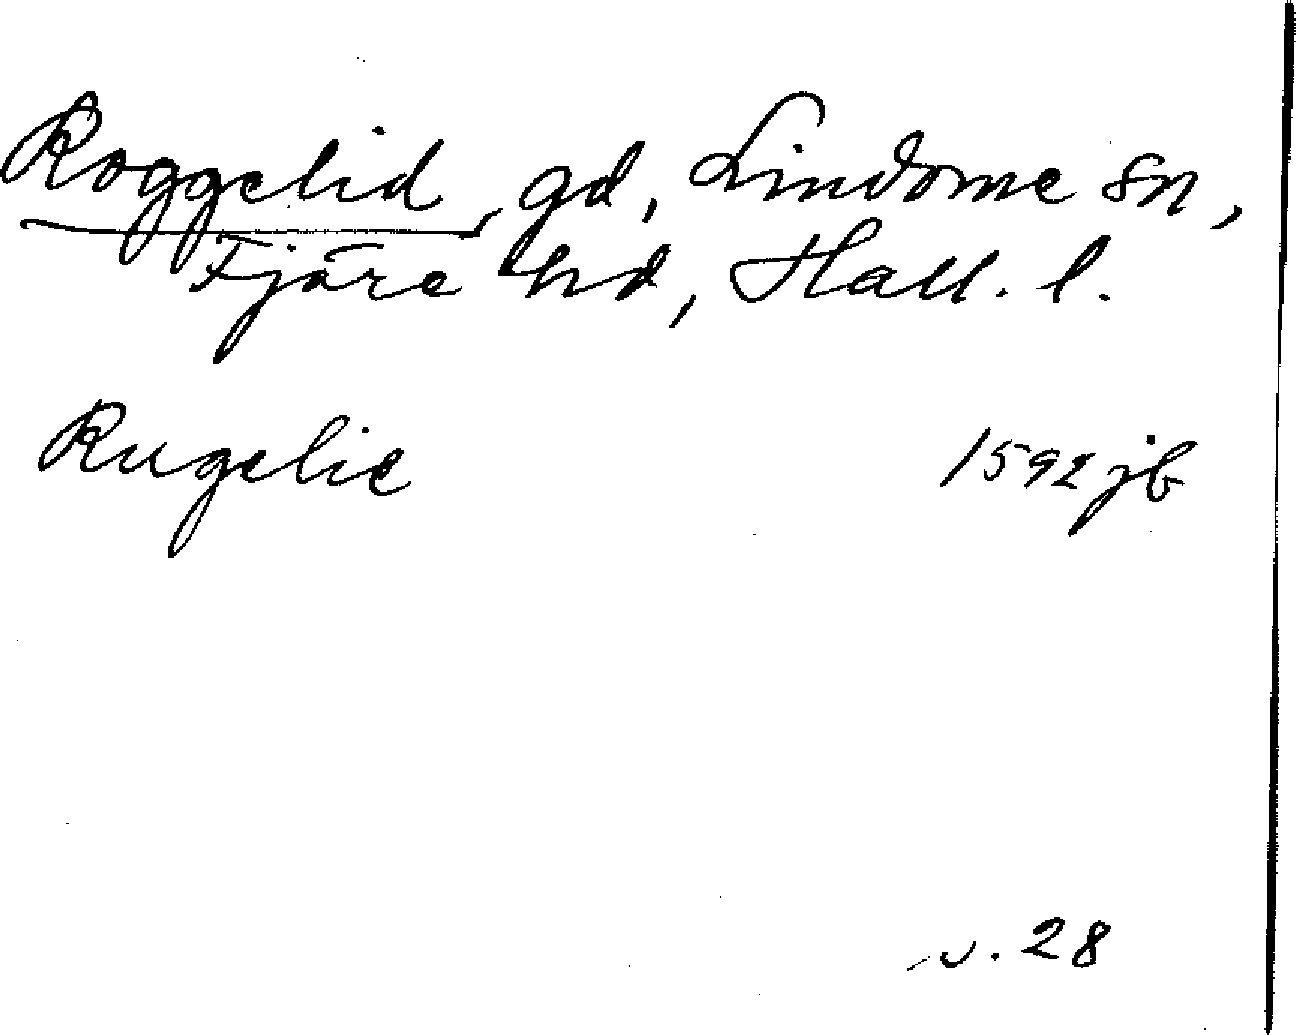 Roggelid, gd, Lindome sn,
Fjäre hd, Hall. l.
Rugelie 1592 jb
v. 28